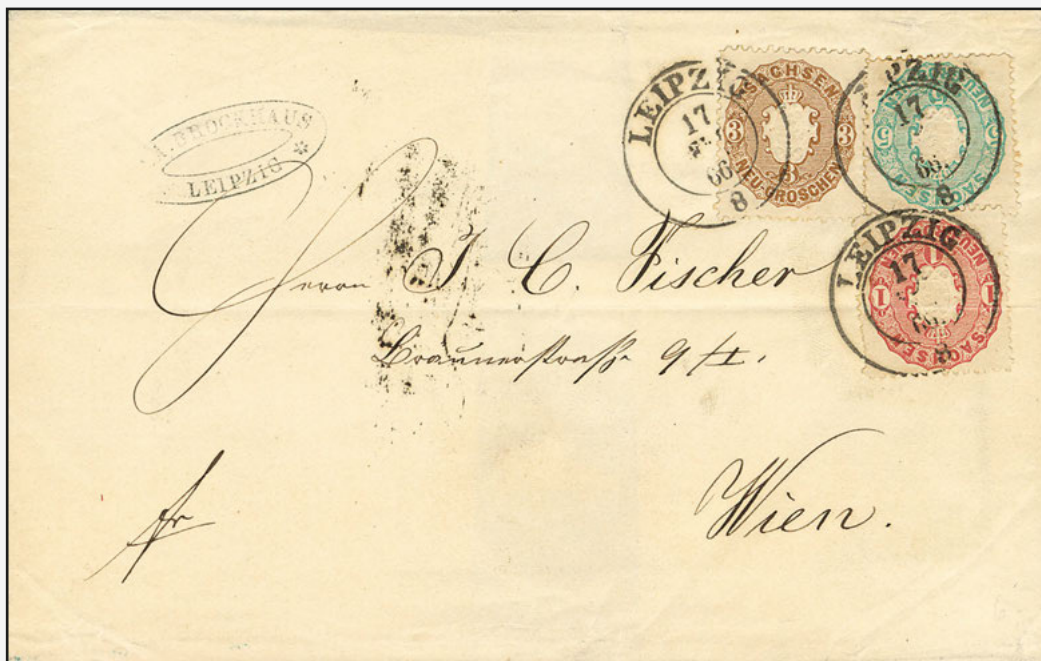 A. BROCKHAUS
LEIPZIG *
LEIPZIG
17
66
8
SACHSEN
3 3
3
NEU-GROSCHEN
LEIPZIG
17
66.
8
5 5
SACHSEN
LEIPZIG
17
8
1
1 1
SACHSEN
Herrn J. C. Fischer
Braunerstraße 9/II.
Wien.
fr